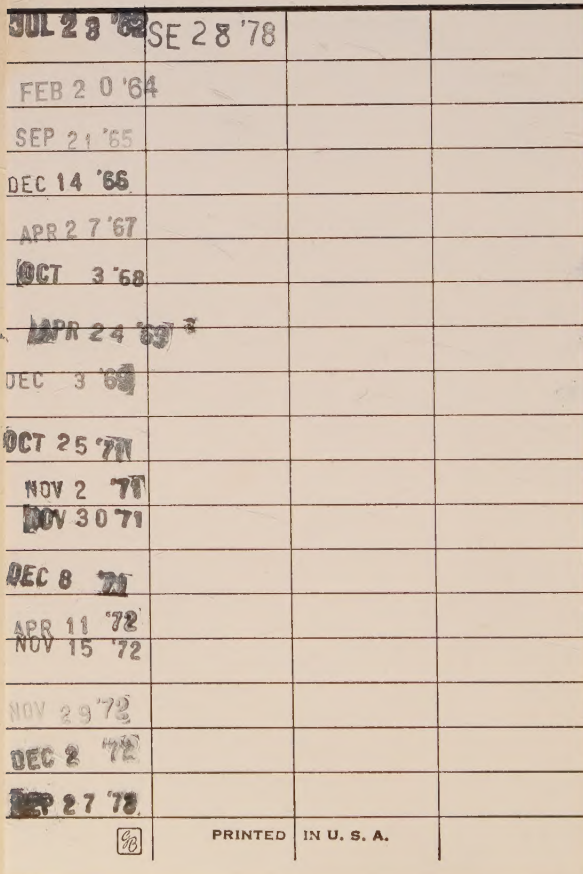 JUL 23 SE 28 '78
FEB 20 '64
SEP 21 '65
DEC 14 '66
APR 27 '67
OCT 3 '68
APR 24 '69
DEC 3 '69
OCT 25 '71
NOV 2 '71
NOV 30 '71
DEC 8 '71
APR 11 '72
NOV 15 '72
NOV 29 '72
DEC 2 '72
SEP 27
GB PRINTED IN U. S. A.